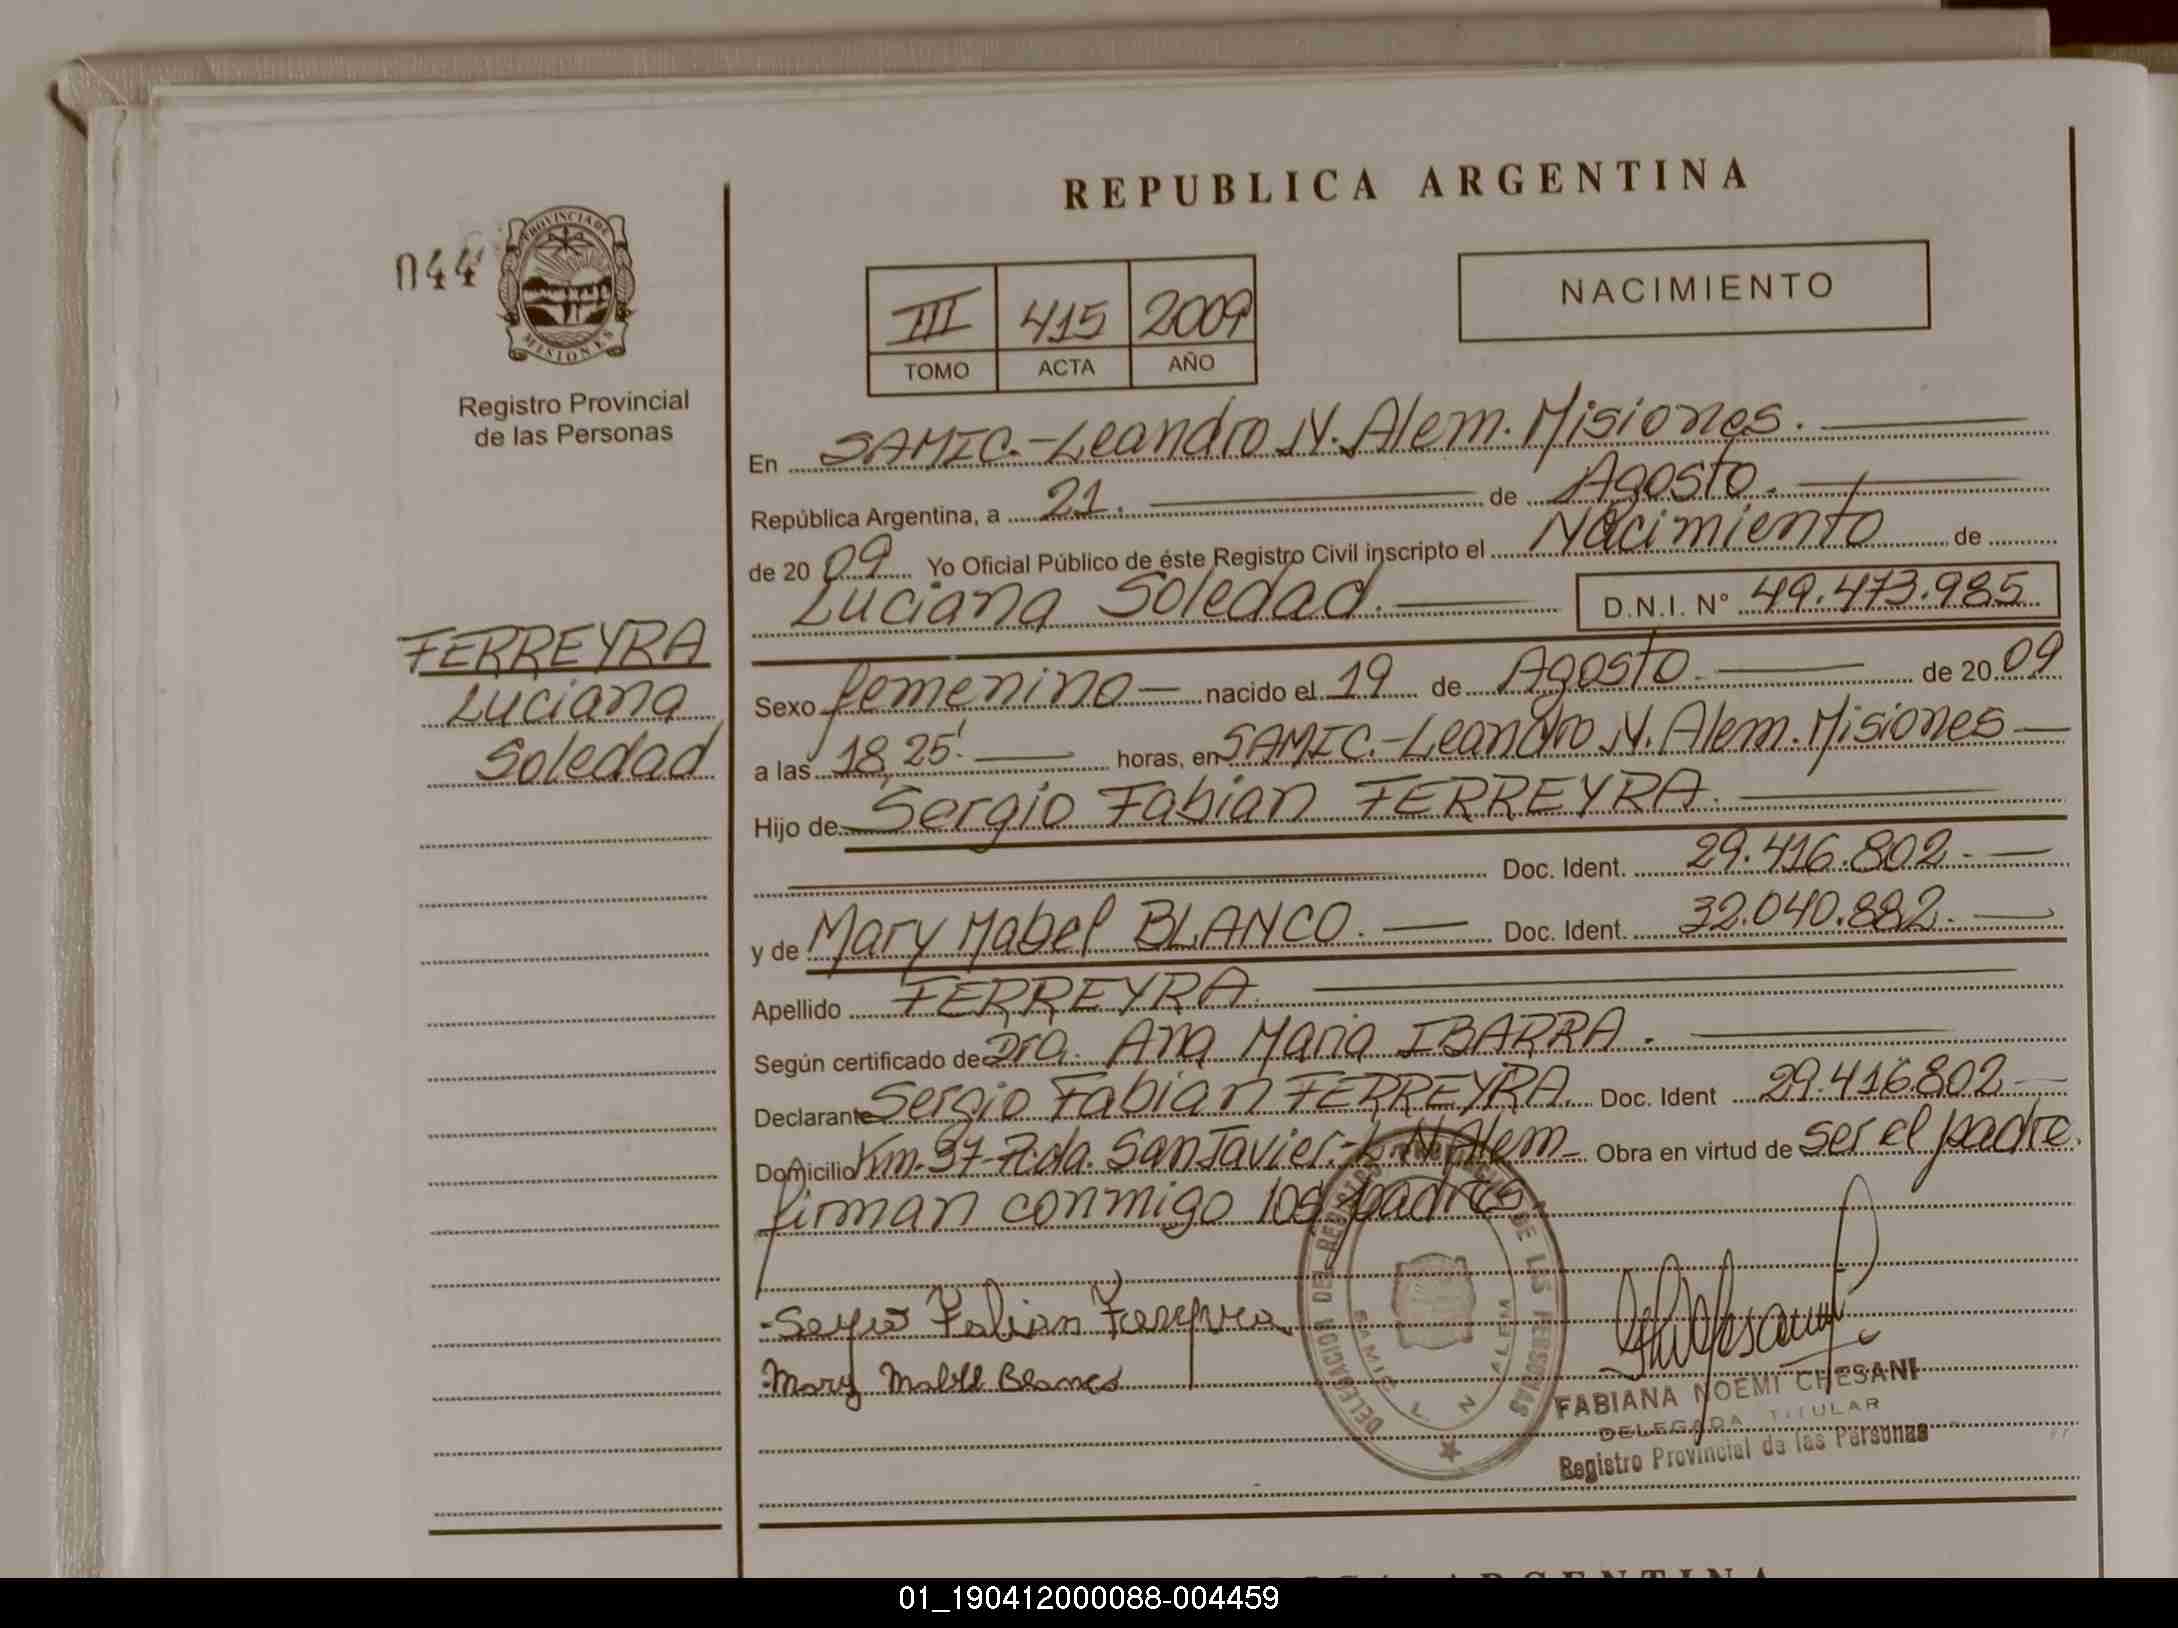 REPUBLICA ARGENTINA
044
PROVINCIA DE
MISIONES
Registro Provincial
de las Personas
III 415 2009
TOMO ACTA AÑO
NACIMIENTO
En SAMIC.-Leandro N. Alem. Misiones.
República Argentina, a 21. de Agosto.
de 2009 Yo Oficial Público de éste Registro Civil inscripto el Nacimiento de
Luciana Soledad. D.N.I. N° 49.473.985
FERREYRA
Luciana
Soledad
Sexo femenino nacido el 19 de Agosto. de 2009
a las 18,25' horas, en SAMIC.-Leandro N. Alem. Misiones
Hijo de Sergio Fabian FERREYRA.
Doc. Ident. 29.416.802.
y de Mary Mabel BLANCO. Doc. Ident. 32.040.882.
Apellido FERREYRA.
Según certificado de Dra. Ana Maria IBARRA.
Declarante Sergio Fabian FERREYRA. Doc. Ident 29.416802
Domicilio Km. 37- San Javier.-L.N.Alem Obra en virtud de ser el padre.
firman conmigo los padres.
Sergio Fabian Ferreyra
Mary Mabel Blanco
DELEGACION DEL REGISTRO DE LAS PERSONAS
SAMIC L. N. ALEM
FABIANA NOEMI CHESANI
DELEGADA TITULAR
Registro Provincial de las Personas
01_190412000088-004459